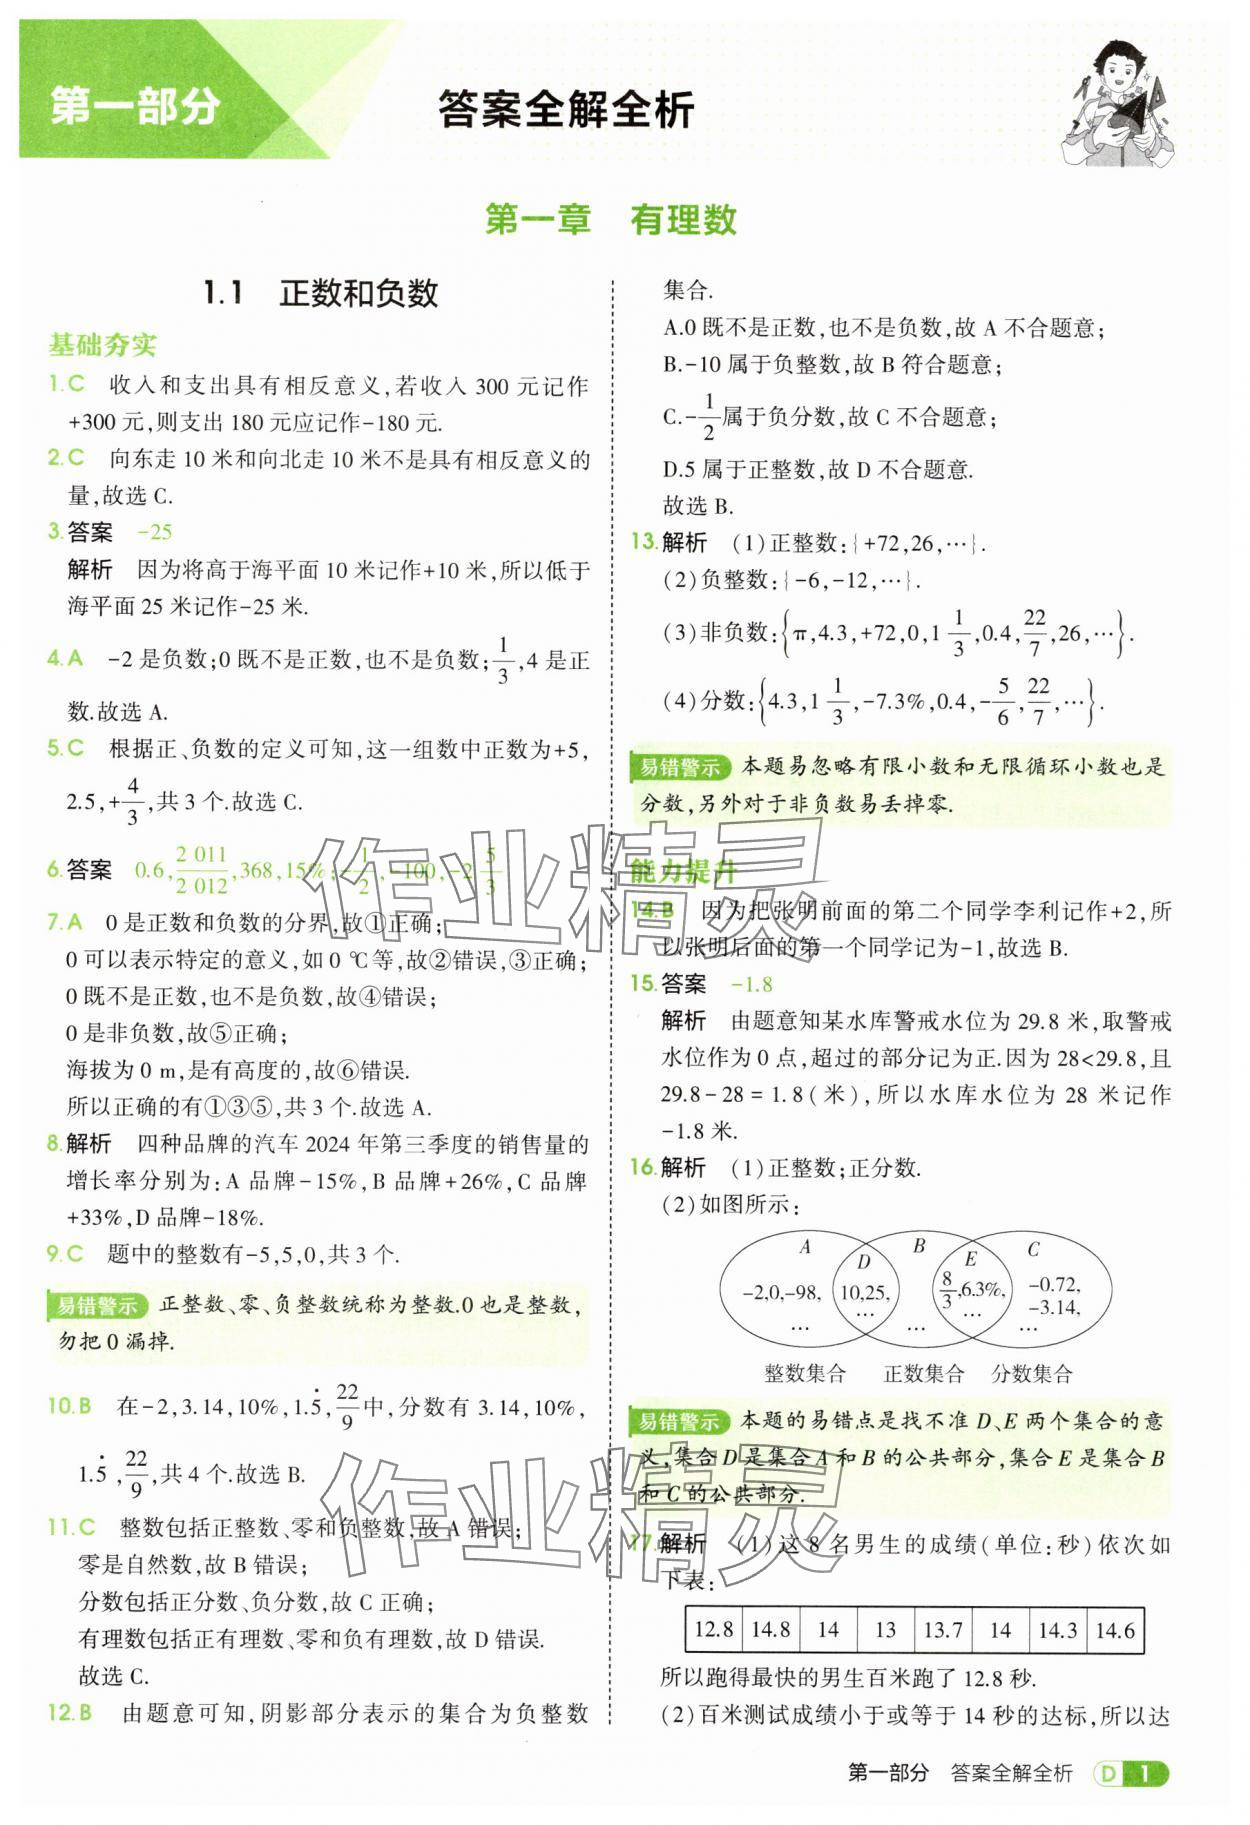 第一部分
答案全解全析
第一章 有理数
1.1 正数和负数
基础夯实
1.C 收入和支出具有相反意义,若收入 300 元记作
+300 元,则支出 180 元应记作-180 元.
2.C 向东走 10 米和向北走 10 米不是具有相反意义的
量,故选 C.
3.答案 -25
解析 因为将高于海平面 10 米记作+10 米,所以低于
海平面 25 米记作-25 米.
4.A -2 是负数;0 既不是正数,也不是负数;1/3,4 是正
数.故选 A.
5.C 根据正、负数的定义可知,这一组数中正数为+5,
2.5,+4/3,共 3 个.故选 C.
6.答案 0.6,2 011/2 012,368,15%;-1/2,-100,-2 5/3
7.A 0 是正数和负数的分界,故①正确;
0 可以表示特定的意义,如 0 ℃等,故②错误,③正确;
0 既不是正数,也不是负数,故④错误;
0 是非负数,故⑤正确;
海拔为 0 m,是有高度的,故⑥错误.
所以正确的有①③⑤,共 3 个.故选 A.
8.解析 四种品牌的汽车 2024 年第三季度的销售量的
增长率分别为:A 品牌-15%,B 品牌+26%,C 品牌
+33%,D 品牌-18%.
9.C 题中的整数有-5,5,0,共 3 个.
易错警示 正整数、零、负整数统称为整数.0 也是整数,
勿把 0 漏掉.
10.B 在-2,3.14,10%,1.5̇,22/9中,分数有 3.14,10%,
1.5̇,22/9,共 4 个.故选 B.
11.C 整数包括正整数、零和负整数,故 A 错误;
零是自然数,故 B 错误;
分数包括正分数、负分数,故 C 正确;
有理数包括正有理数、零和负有理数,故 D 错误.
故选 C.
12.B 由题意可知,阴影部分表示的集合为负整数
集合.
A.0 既不是正数,也不是负数,故 A 不合题意;
B.-10 属于负整数,故 B 符合题意;
C.-1/2属于负分数,故 C 不合题意;
D.5 属于正整数,故 D 不合题意.
故选 B.
13.解析 (1)正整数:{+72,26,…}.
(2)负整数:{-6,-12,…}.
(3)非负数:{π,4.3,+72,0,1 1/3,0.4,22/7,26,…}.
(4)分数:{4.3,1 1/3,-7.3%,0.4,-5/6,22/7,…}.
易错警示 本题易忽略有限小数和无限循环小数也是
分数,另外对于非负数易丢掉零.
能力提升
14.B 因为把张明前面的第二个同学李利记作+2,所
以张明后面的第一个同学记为-1,故选 B.
15.答案 -1.8
解析 由题意知某水库警戒水位为 29.8 米,取警戒
水位作为 0 点,超过的部分记为正.因为 28<29.8,且
29.8-28=1.8(米),所以水库水位为 28 米记作
-1.8 米.
16.解析 (1)正整数;正分数.
(2)如图所示:
A D B E C
-2,0,-98, 10,25, 8/3,6.3%, -0.72,
-3.14,
… … … … …
整数集合 正数集合 分数集合
易错警示 本题的易错点是找不准 D、E 两个集合的意
义,集合 D 是集合 A 和 B 的公共部分,集合 E 是集合 B
和 C 的公共部分.
17.解析 (1)这 8 名男生的成绩(单位:秒)依次如
下表:
12.8 14.8 14 13 13.7 14 14.3 14.6
所以跑得最快的男生百米跑了 12.8 秒.
(2)百米测试成绩小于或等于 14 秒的达标,所以达
第一部分 答案全解全析 D 1
作业精灵
作业精灵